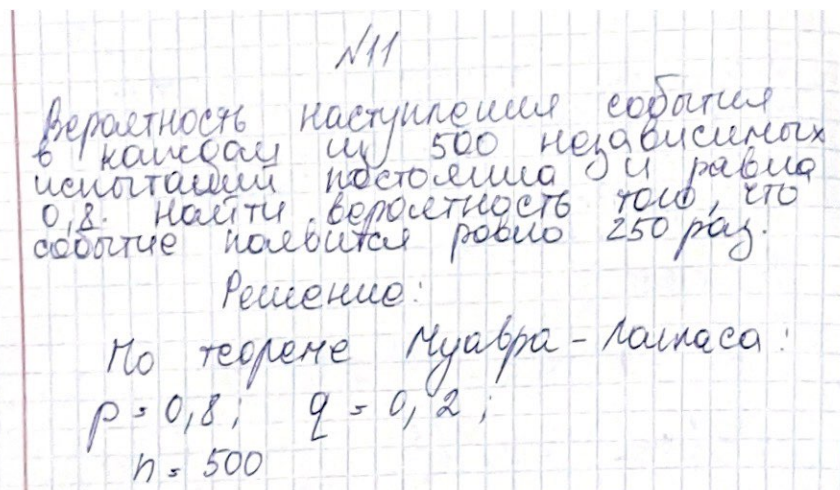 №11
Вероятность наступления события
в каждом из 500 независимых
испытаний постоянна и равна
0,8. Найти вероятность того, что
событие появится ровно 250 раз.
Решение:
По теореме Муавра-Лапласа:
p = 0,8; q = 0,2;
n = 500